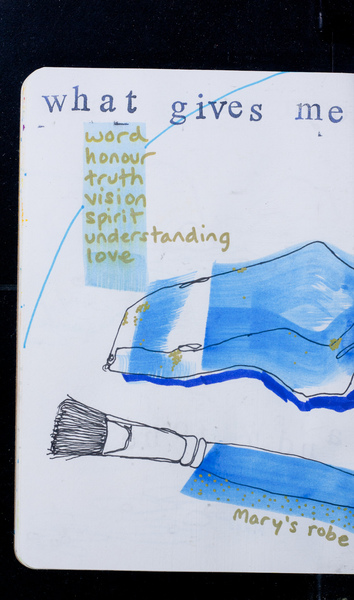 what gives me
word
honour
truth
vision
spirit
understanding
love
Mary's robe